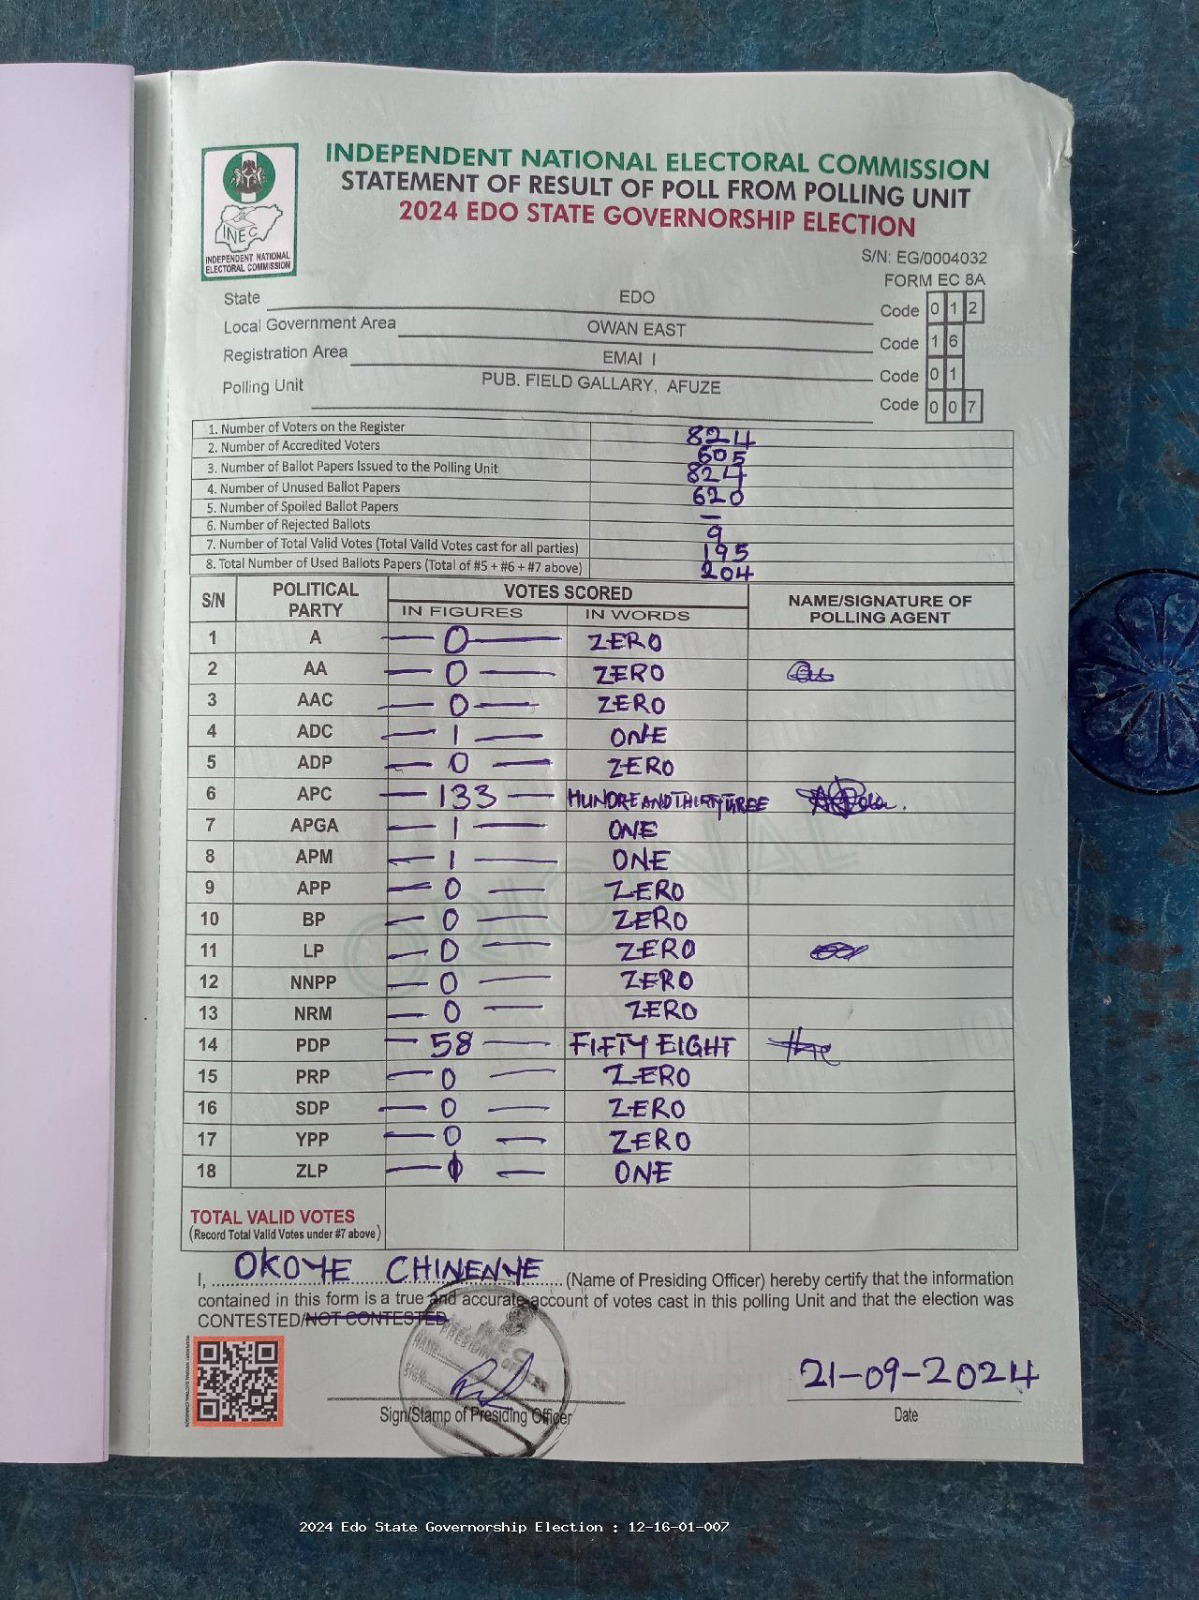 INDEPENDENT NATIONAL ELECTORAL COMMISSION
STATEMENT OF RESULT OF POLL FROM POLLING UNIT
2024 EDO STATE GOVERNORSHIP ELECTION
INEC
INDEPENDENT NATIONAL
ELECTORAL COMMISSION
S/N: EG/0004032
FORM EC 8A
State EDO Code 0 1 2
Local Government Area OWAN EAST Code 1 6
Registration Area EMAI I Code 0 1
Polling Unit PUB. FIELD GALLARY, AFUZE Code 0 0 7
1. Number of Voters on the Register 824
2. Number of Accredited Voters 605
3. Number of Ballot Papers Issued to the Polling Unit 824
4. Number of Unused Ballot Papers 620
5. Number of Spoiled Ballot Papers —
6. Number of Rejected Ballots 9
7. Number of Total Valid Votes (Total Valid Votes cast for all parties) 195
8. Total Number of Used Ballots Papers (Total of #5 + #6 + #7 above) 204
S/N POLITICAL PARTY VOTES SCORED NAME/SIGNATURE OF POLLING AGENT
IN FIGURES IN WORDS
1 A — 0 — ZERO
2 AA — 0 — ZERO
3 AAC — 0 — ZERO
4 ADC — 1 — ONE
5 ADP — 0 — ZERO
6 APC — 133 — HUNDREANDTHIRTYTHREE
7 APGA — 1 — ONE
8 APM — 1 — ONE
9 APP — 0 — ZERO
10 BP — 0 — ZERO
11 LP — 0 — ZERO
12 NNPP — 0 — ZERO
13 NRM — 0 — ZERO
14 PDP — 58 — FIFTY EIGHT
15 PRP — 0 — ZERO
16 SDP — 0 — ZERO
17 YPP — 0 — ZERO
18 ZLP — — ONE
TOTAL VALID VOTES
(Record Total Valid Votes under #7 above)
I, OKOYE CHINENYE (Name of Presiding Officer) hereby certify that the information
contained in this form is a true and accurate account of votes cast in this polling Unit and that the election was
CONTESTED/NOT CONTESTED
21-09-2024
Sign/Stamp of Presiding Officer
Date
2024 Edo State Governorship Election : 12-16-01-007